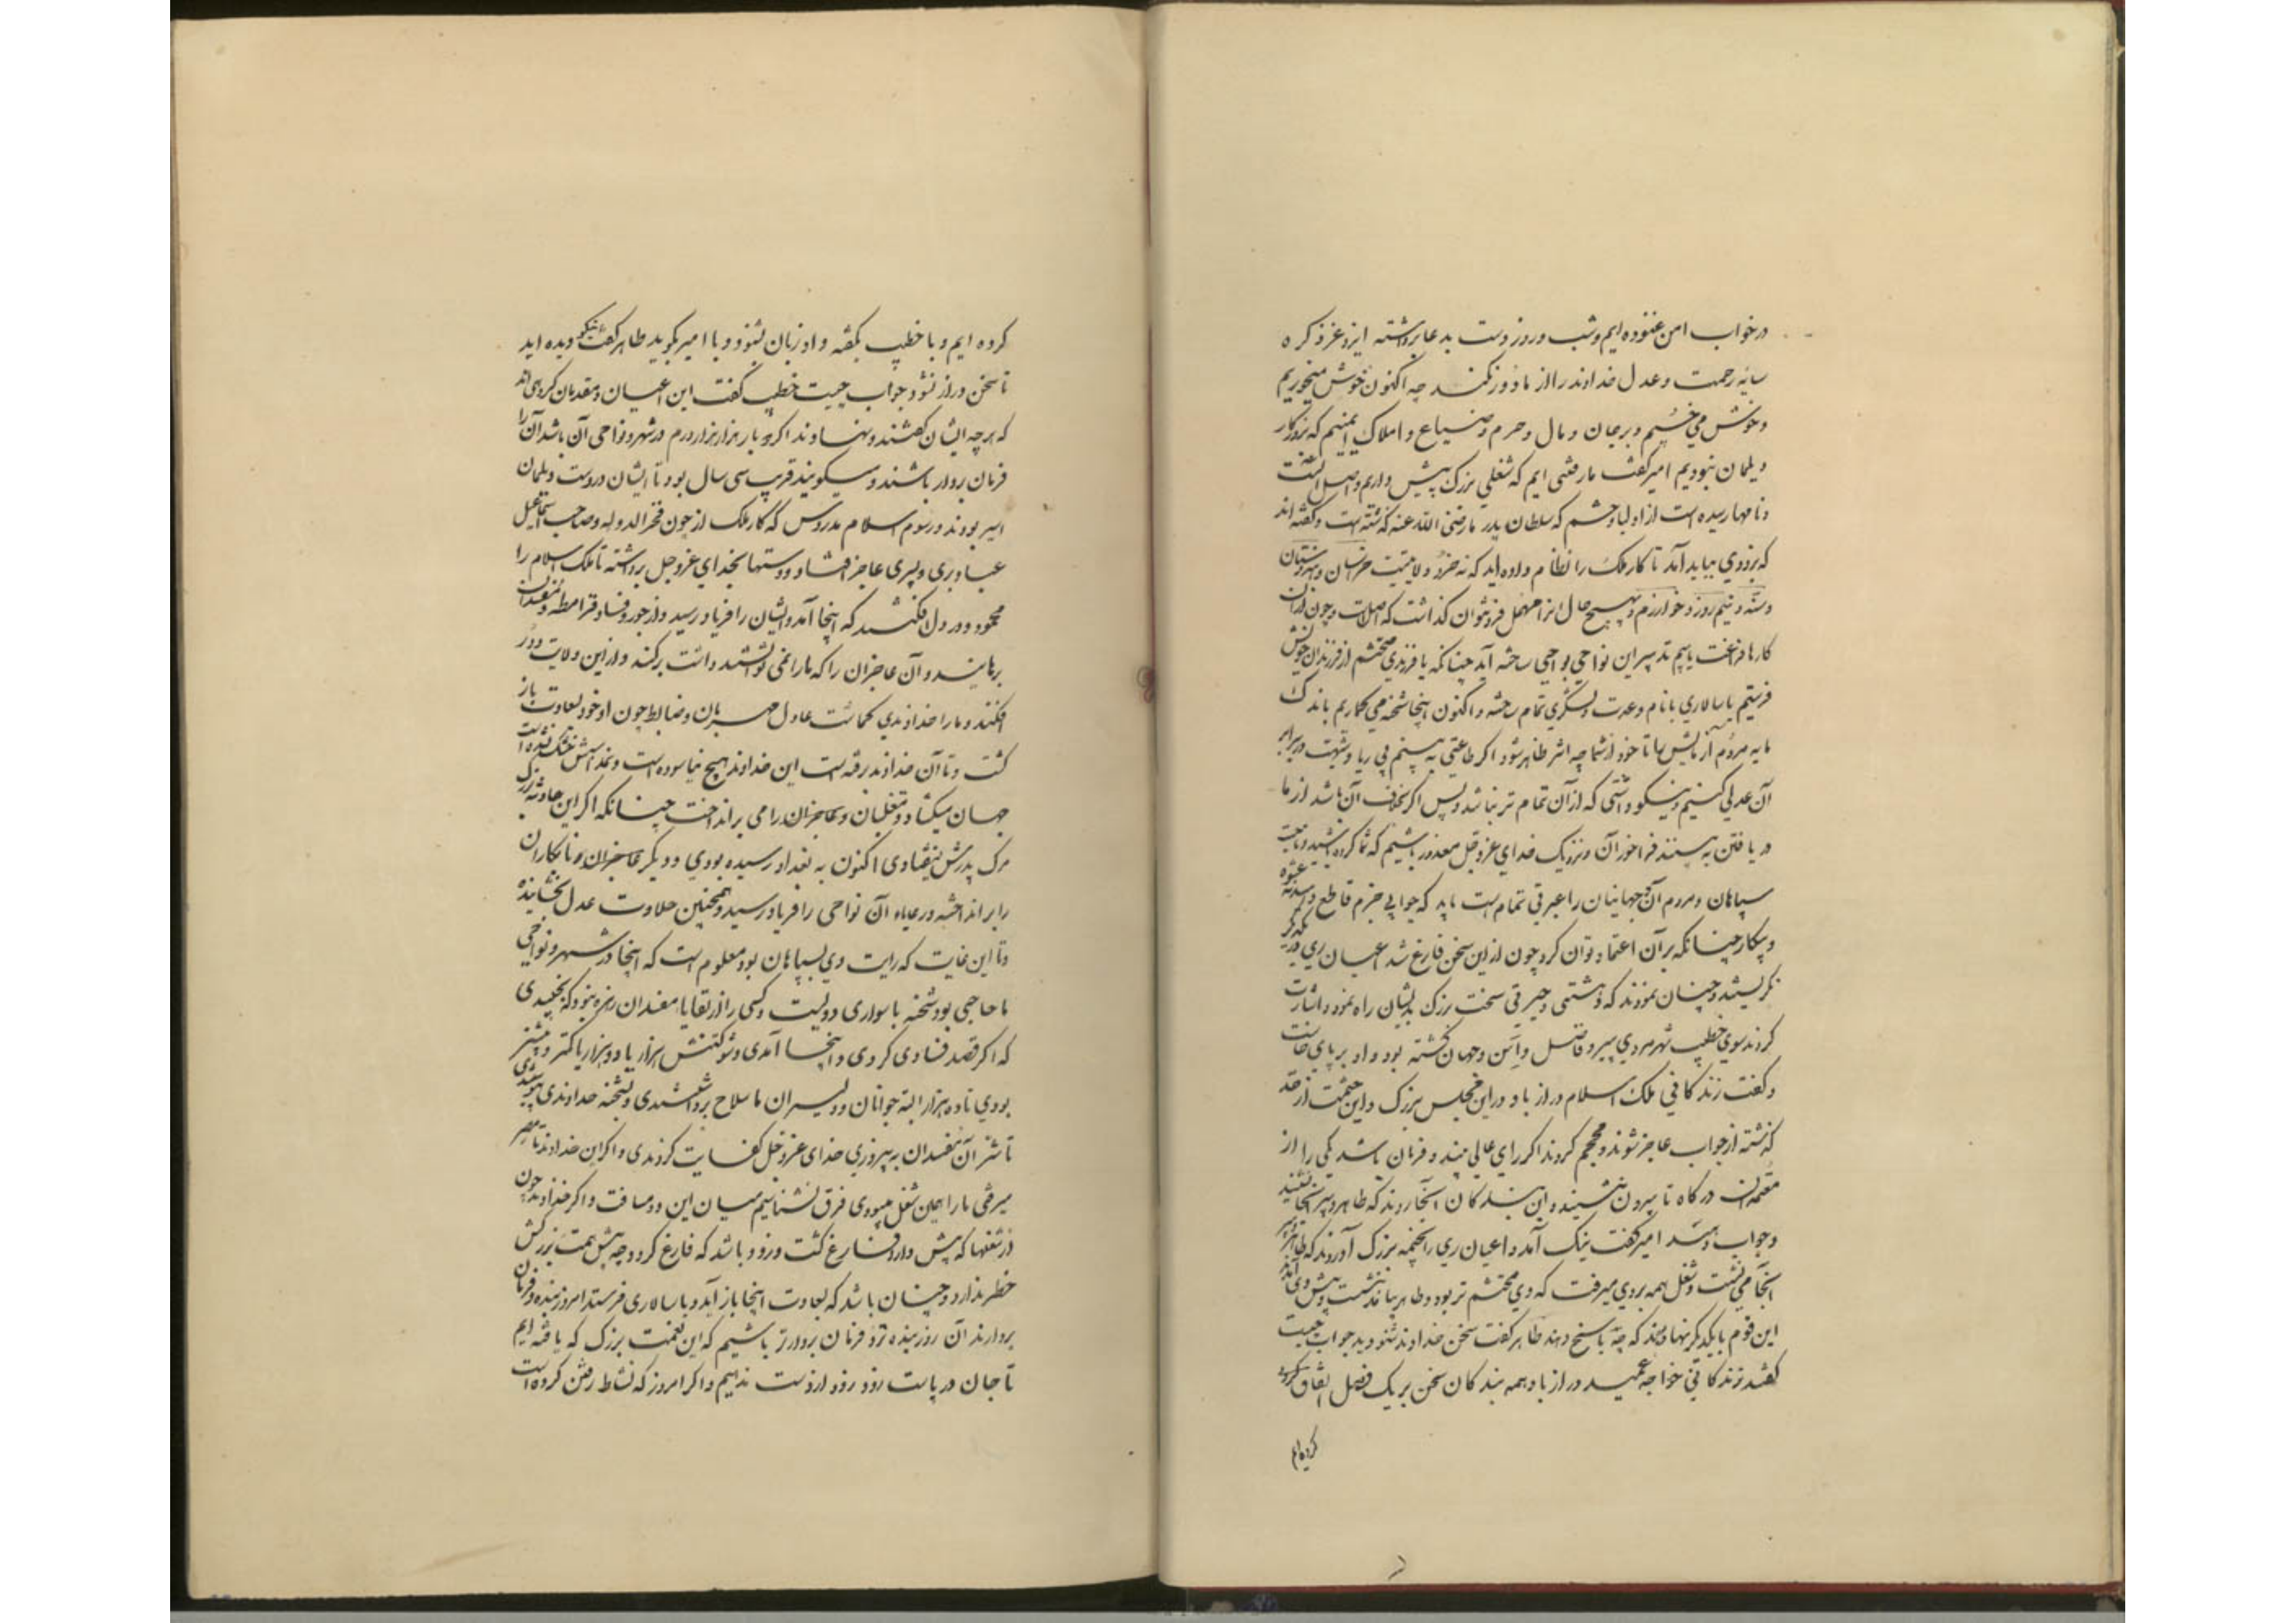 درخواب امن غنوده ایم و شب و روز دست بدعا برداشته ایزد عز ذکره
سایه رحمت و عدل خداوند را از ما دور نکند چه اکنون خوش میخوریم
و خوش می خسپیم و بر جان و مال و حرم و ضیاع و املاک ایمنیم که بروزگار
دیلمان نبودیم امیر گفت ما رفتنی ایم که شغلی بزرگ پیش داریم و اصل آنست
و نامها رسیده است از اولیا و حشم که سلطان پدر ما رضی الله عنه گذشته است و گفته اند
که بزودی بباید آمد تا کار ملک را نظام داده اید که نه خرد ولایتیست خراسان و هندوستان
و سند و نیمروز و خوارزم و بهیچ حال انرا مهمل فرو نتوان گذاشت که اصلست و چون از آن
کارها فراغت یابیم تدبیر این نواحی بواجبی ساخته آید چنانکه یا فرزندی محتشم از فرزندان خویش
فرستیم یا سالاری با نام و عدت و لشکری تمام ساخته و اکنون اینجا شحنه می گماریم باندک
مایه مردم آزمایش را تا خود از شما چه اثر ظاهر شود اگر طاعتی بینیم بی ریا و شبهت در برابر
آن عدلی کنیم و نیکو داشتی که از آن تمام تر نباشد و پس اگر بخلاف آن باشد از ما
دریافتن به بینند فراخور آن و نزدیک خدای عز و جل معذور باشیم که شما کرده باشید و ناحیت
سپاهان و مردم آن جهانیان را عبرتی تمام است باید که جوابی جزم قاطع دهید نه عشوه
و پیکار چنانکه بر آن اعتماد توان کرد چون از این سخن فارغ شد اعیان ری در یکدیگر
نگریستند و چنان نمودند که دهشتی و حیرتی سخت بزرگ بدیشان راه نمود و اشارت
کردند سوی خطیب شهر مردی پیر و فاضل و اسن و جهان گشته بود و او بر پای خاست
و گفت زندگانی ملک اسلام دراز باد در این مجلس بزرگ و این حشمت از حد
گذشته از جواب عاجز شوند و محجم گردند اگر رای عالی بیند و فرمان باشد یکی را از
معتمدان درگاه تا بیرون بنشیند و این بندگان آنجا روند که طاهر دبیر آنجا نشیند
و جواب دهند امیر گفت نیک آمد و اعیان ری را بخیمه بزرگ آوردند که طاهر دبیر
آنجا می نشست و شغل همه بروی میرفت که وی محتشم تر بود و طاهر بیامد بنشست و پیش وی آمدند
این قوم با یکدیگر نهاده بودند که چه پاسخ دهند طاهر گفت سخن خداوند شنودید جواب چیست
گفتند زندگانی خواجه عمید دراز باد همه بندگان سخن بر یک فصل اتفاق کردند
کرده ایم
کرده ایم و با خطیب بگفته و او زبان بشنود و با امیر بگوید طاهر گفت نیکو دیده اید
تا سخن دراز نشود جواب چیست خطیب گفت این اعیان و مقدمان گروهی اند
که هرچه ایشان گفتند و نهادند اگر دو بار هزار هزار درم در شهر و نواحی آن باشد آن را
فرمان بردار باشند و میگویند قریب سی سال بود تا ایشان در دست دیلمان
اسیر بودند و رسوم اسلام مدروس که کار ملک از چون فخرالدوله و صاحب اسماعیل
عباد بری و پسری عاجز افتاد و دستها بخدای عز و جل برداشته تا ملک اسلام را
محمود در دل افکند که اینجا آمد و ایشان را فریاد رسید و از جور و فساد قرامطه و مفسدان
برهانید و آن عاجزان را که ما را نمی توانستند داشت برکند و از این ولایت دور
افکند و ما را خداوندی گماشت عادل مهربان و ضابط چون او خود بسعادت باز
گشت و تا آن خداوند رفته است این خداوند هیچ نیاسوده است و نمد اسبش خشک نشده است
جهان میگشاد و متغلبان و عاجزان را می برانداخت چنانکه اگر این حادثه بزرگ
مرگ پدرش نیفتادی اکنون به بغداد رسیده بودی و دیگر عاجزان و نابکاران
را برانداخته و رعایاء آن نواحی را فریاد رسیده و همچنین حلاوت عدل بچشانیده
و تا این غایت که رایت وی بسپاهان بود معلوم است که اینجا در شهر و نواحی
ما حاجبی بود شحنه با سواری دویست و کسی را از بقایا مفسدان زهره نبود که بجنبیدی
که اگر قصد فسادی کردی و اینجا آمدی و شوکتش هزار یا دو هزار یا کمتر و بیشتر
بودی تا ده هزار البته جوانان و دلیران ما سلاح برداشتندی و بشحنه خداوندی پیوستندی
تا شر آن مفسدان به پیروزی خدای عز و جل کفایت کردندی و اگر این خداوند تا مصر
میرفتی ما را همین شغل میبودی فرق نشناسیم میان این دو مسافت و اگر خداوند چون
از شغلها که پیش دارد فارغ گشت و زود باشد که فارغ گردد چه پیش همت بزرگش
خطر ندارد و چنان باشد که بسعادت اینجا باز آید و یا سالاری فرستد امروز بنده و فرمان
بردارند آن روز بنده تر و فرمان بردارتر باشیم که این نعمت بزرگ که یافته ایم
تا جان در یاست زود زود از دست ندهیم و اگر امروز که نشاط رفتن کرده است